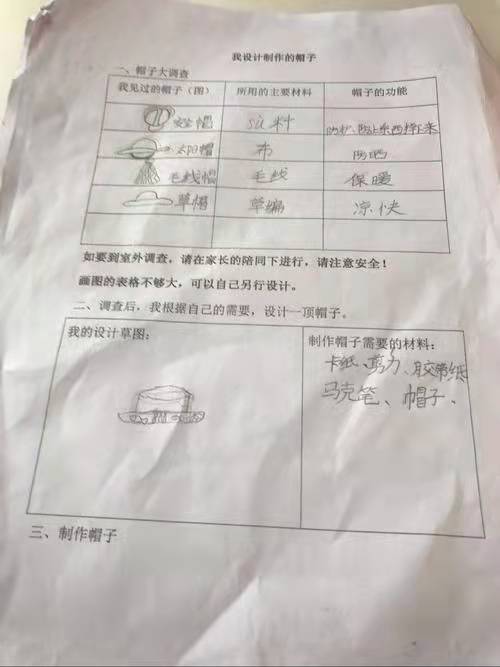 我设计制作的帽子
一、帽子大调查
我见过的帽子（图） 所用的主要材料 帽子的功能
安全帽 sù料 防护、防止东西掉下来
太阳帽 布 防晒
毛线帽 毛线 保暖
草帽 草编 凉快
如要到室外调查，请在家长的陪同下进行，请注意安全！
画图的表格不够大，可以自己另行设计。
二、调查后，我根据自己的需要，设计一顶帽子。
我的设计草图： 制作帽子需要的材料：
卡纸、剪刀、胶带纸
马克笔、帽子、
三、制作帽子